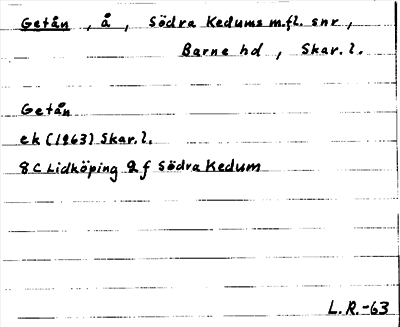 Getån, å, Södra Kedums m.fl. snr,
Barne hd, Skar. l.
Getån
ek (1963) Skar. l.
8 C Lidköping 2 f Södra Kedum
L. R. -63